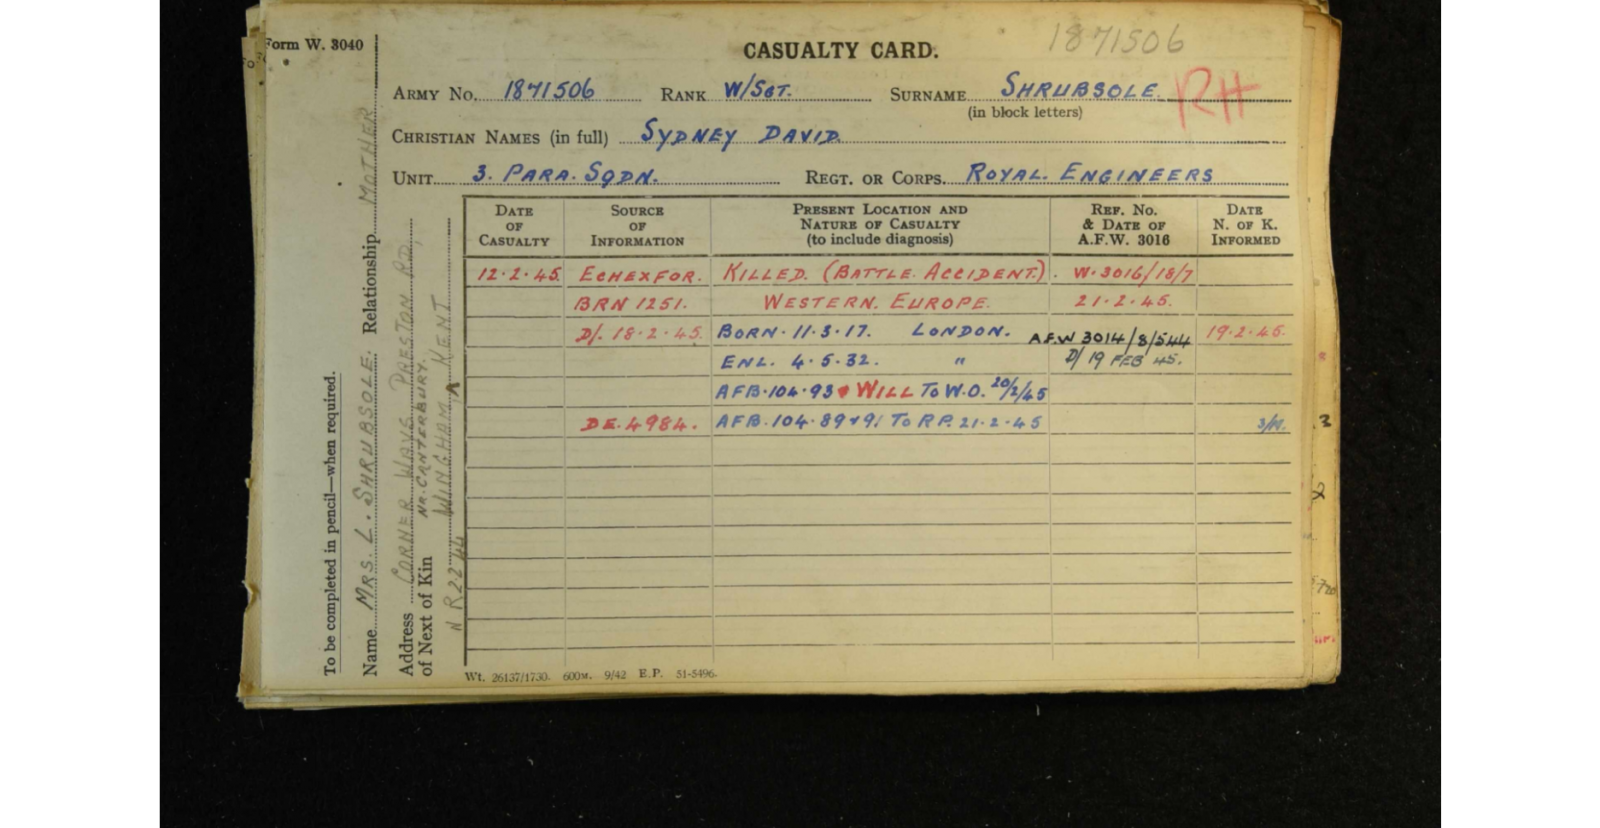 Form W. 3040
CASUALTY CARD.
1871506
ARMY No. 1871506 RANK W/SGT. SURNAME SHRUBSOLE
(in block letters)
RH
CHRISTIAN NAMES (in full) SYDNEY DAVID
UNIT 3. PARA. SQDN. REGT. OR CORPS. ROYAL ENGINEERS
DATE OF CASUALTY SOURCE OF INFORMATION PRESENT LOCATION AND NATURE OF CASUALTY (to include diagnosis) REF. NO. & DATE OF A.F.W. 3016 DATE N. OF K. INFORMED
12.2.45. ECHEXFOR. KILLED. (BATTLE ACCIDENT). W.3016/18/7
BRN 1251. WESTERN. EUROPE. 21.2.45.
D/. 18.2.45. BORN. 11.3.17. LONDON. AFW 3014/8/544 19.2.45.
ENL. 4.5.32. " D/ 19 FEB 45.
AFB.104.93 & WILL TO W.O. 20/2/45
DE.4984. AFB.104.89+91 TO RP. 21.2.45
Wt. 26137/1730. 600M. 9/42 E.P. 51-5496.
To be completed in pencil—when required.
Name MRS. L. SHRUBSOLE. Relationship MOTHER
Address CORNER WAYS PRESTON RD,
of Next of Kin NR. CANTERBURY.
WINGHAM KENT
3
2